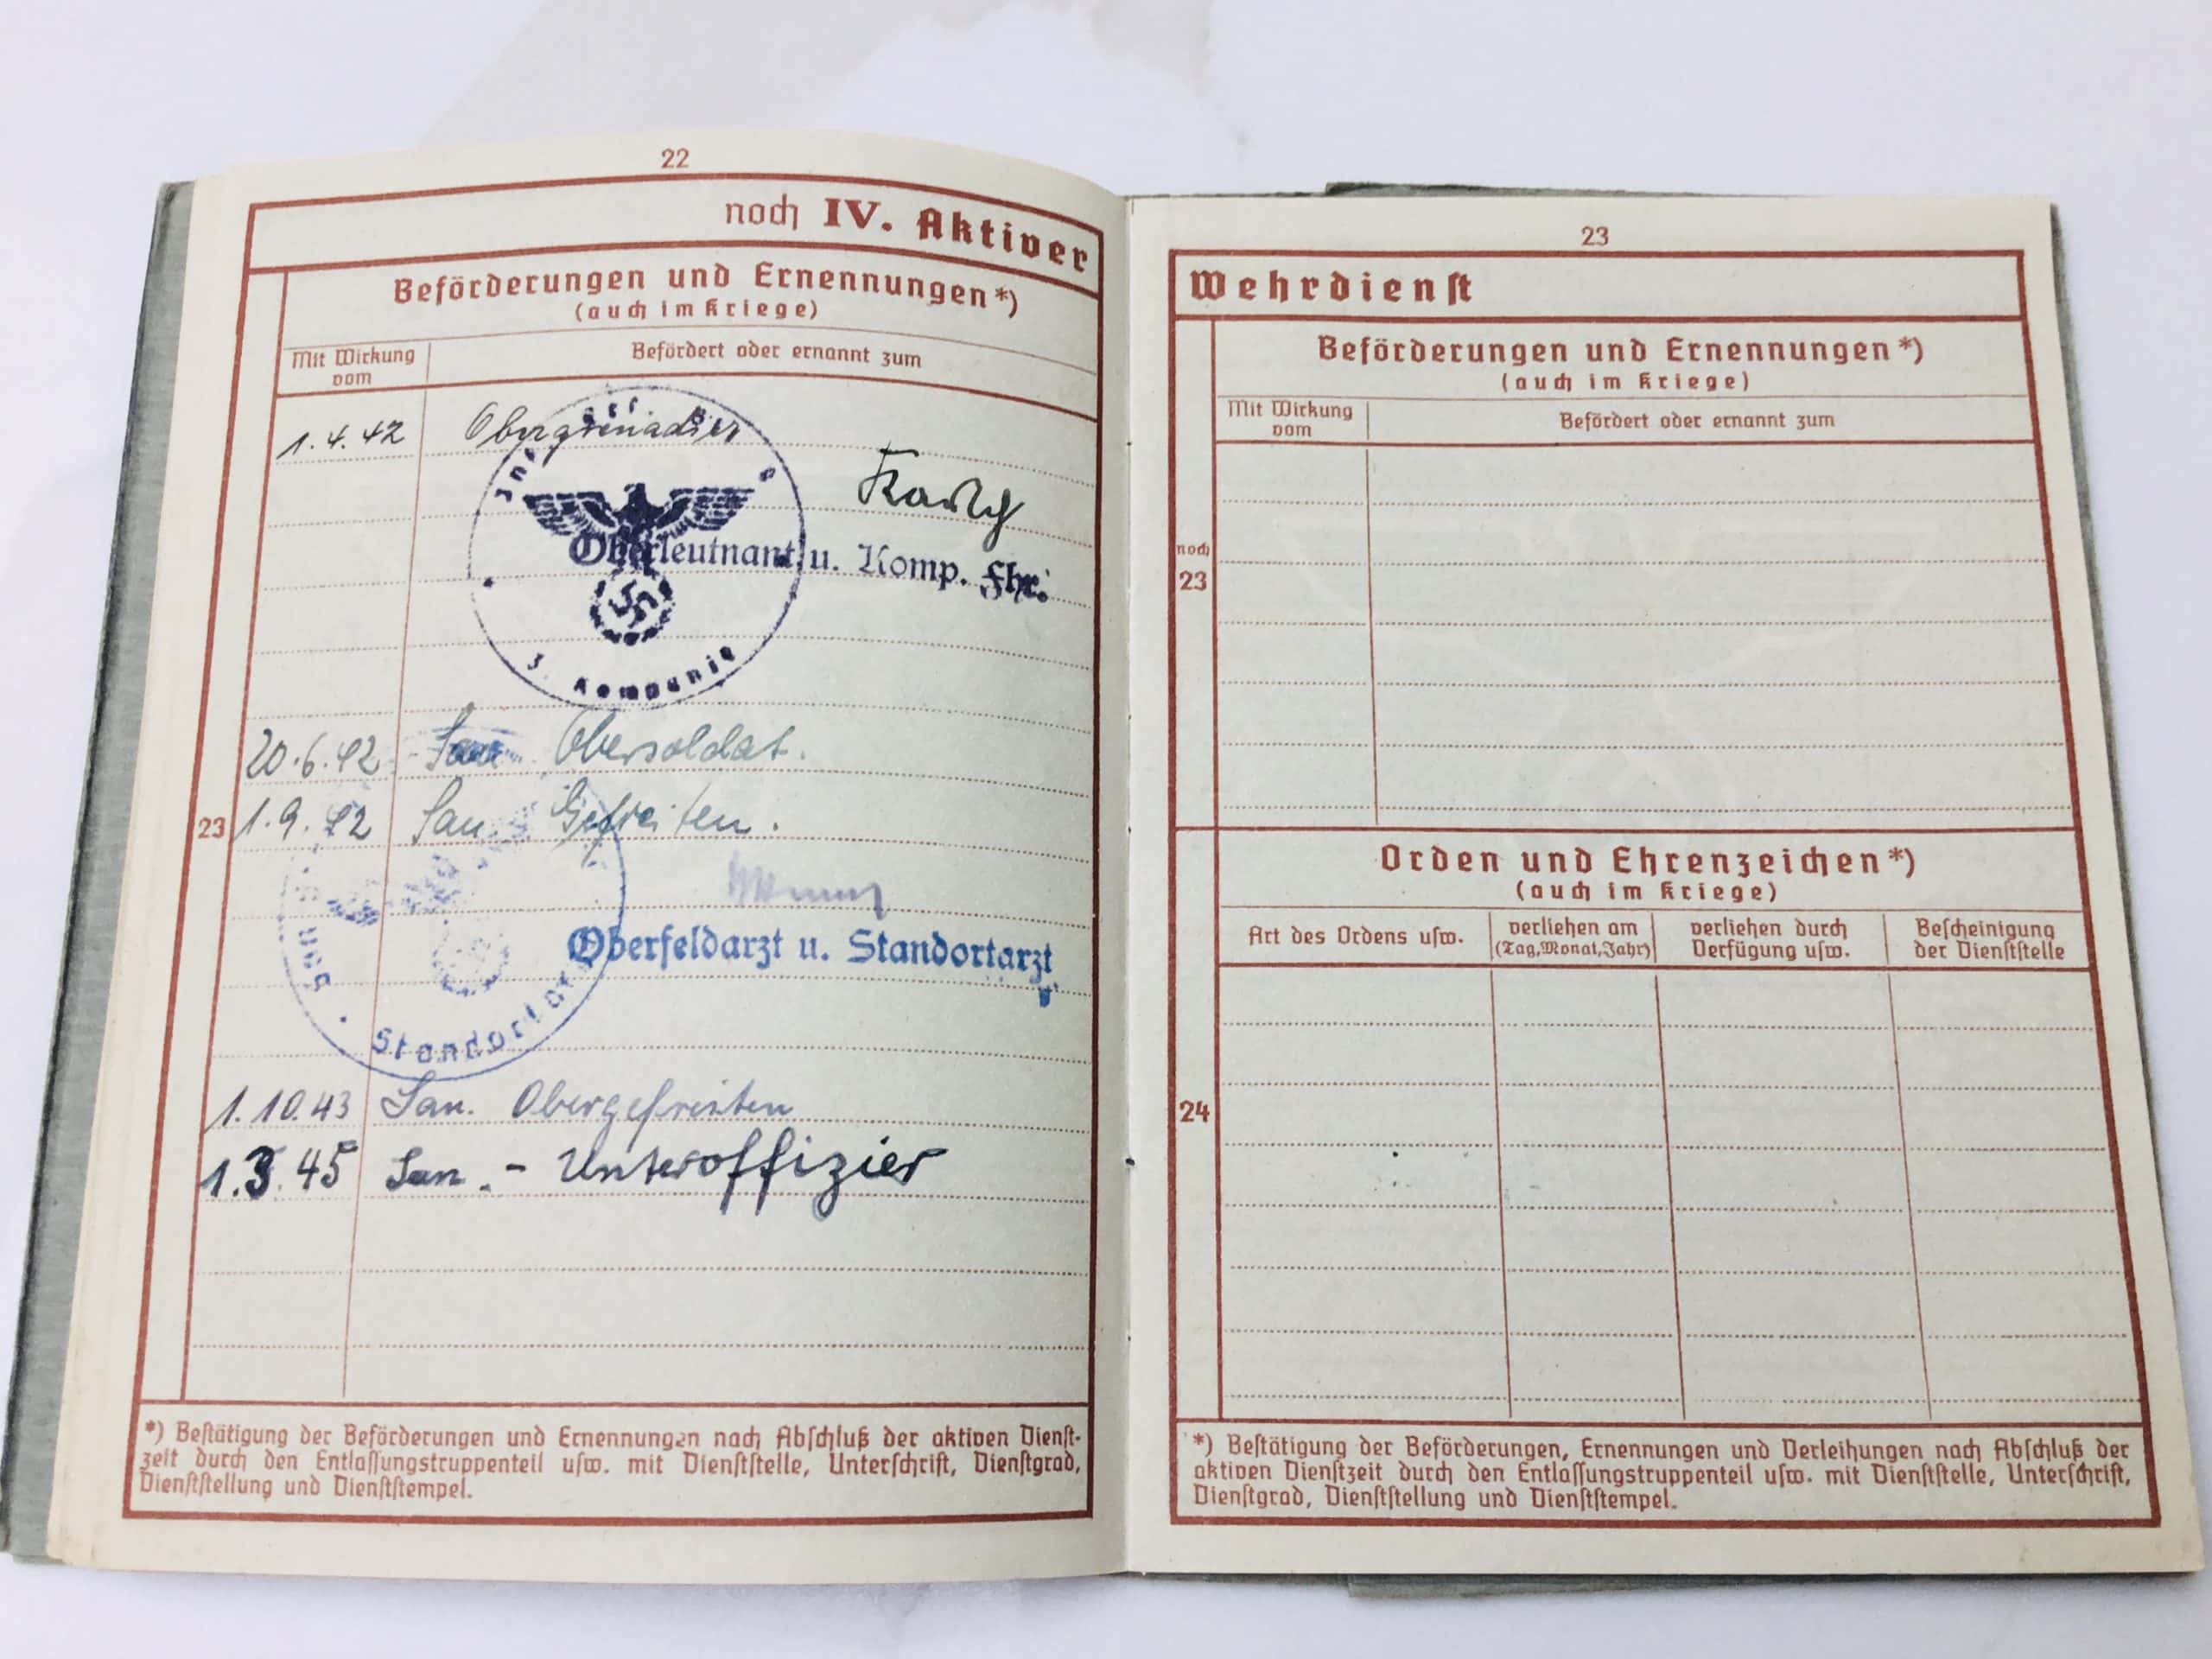 22
noch IV. Aktiver
Beförderungen und Ernennungen*)
(auch im Kriege)
Mit Wirkung vom
Befördert oder ernannt zum
1.4.42 Obergrenadier
Oberleutnant u. Komp. Fhr.
3. Kompanie
20.6.42 San Obersoldat.
23
1.9.42 San. Gefreiten.
Oberfeldarzt u. Standortarzt
1.10.43 San. Obergefreiten
1.3.45 San. - Unteroffizier
*) Bestätigung der Beförderungen und Ernennungen nach Abschluß der aktiven Dienst-
zeit durch den Entlassungstruppenteil usw. mit Dienststelle, Unterschrift, Dienstgrad,
Dienststellung und Dienststempel.
23
Wehrdienst
Beförderungen und Ernennungen*)
(auch im Kriege)
Mit Wirkung vom
Befördert oder ernannt zum
noch
23
Orden und Ehrenzeichen*)
(auch im Kriege)
Art des Ordens usw.
verliehen am
(Tag, Monat, Jahr)
verliehen durch
Verfügung usw.
Bescheinigung
der Dienststelle
24
*) Bestätigung der Beförderungen, Ernennungen und Verleihungen nach Abschluß der
aktiven Dienstzeit durch den Entlassungstruppenteil usw. mit Dienststelle, Unterschrift,
Dienstgrad, Dienststellung und Dienststempel.